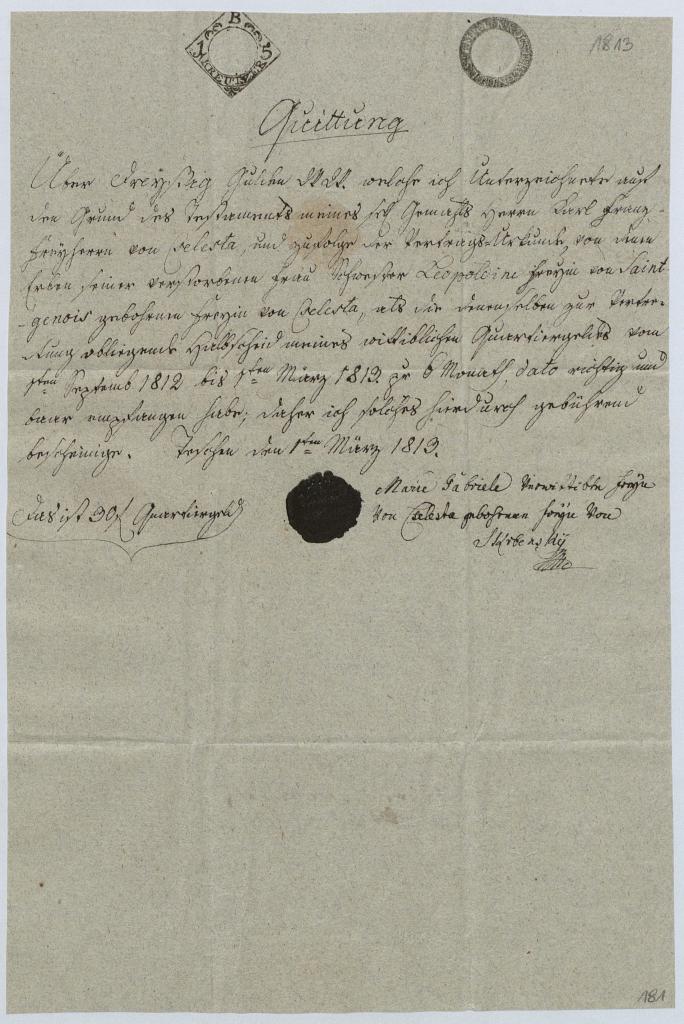 B
15
KREUTZER
1813
Quittung
Über Dreyßig Gulden W. W. welche ich Unterzeichnete auf
den Grund des Testaments meines sel. Gemahls Herrn Karl Franz
Freyherrn von Celesta, und zufolge der Vertrags-Urkunde, von denen
Erben seiner verstorbenen Frau Schwester Leopoldine Freyin von Saint-
-genois gebohrnen Freyin von Celesta, als die denenselben zur Vertre-
tung obliegende Halbscheid meines wittiblichen Quartiergeldes vom
1ten Septemb 1812 bis 1ten März 1813. pr 6 Monath dato richtig und
baar empfangen habe; daher ich solches hierdurch gebührend
bescheinige. Teschen den 1ten März 1813.
Marie Gabriele Verwittibte Freyin
Das ist 30 f Quartiergeld
von Celesta gebohrene Freyin von
Skrbensky
181